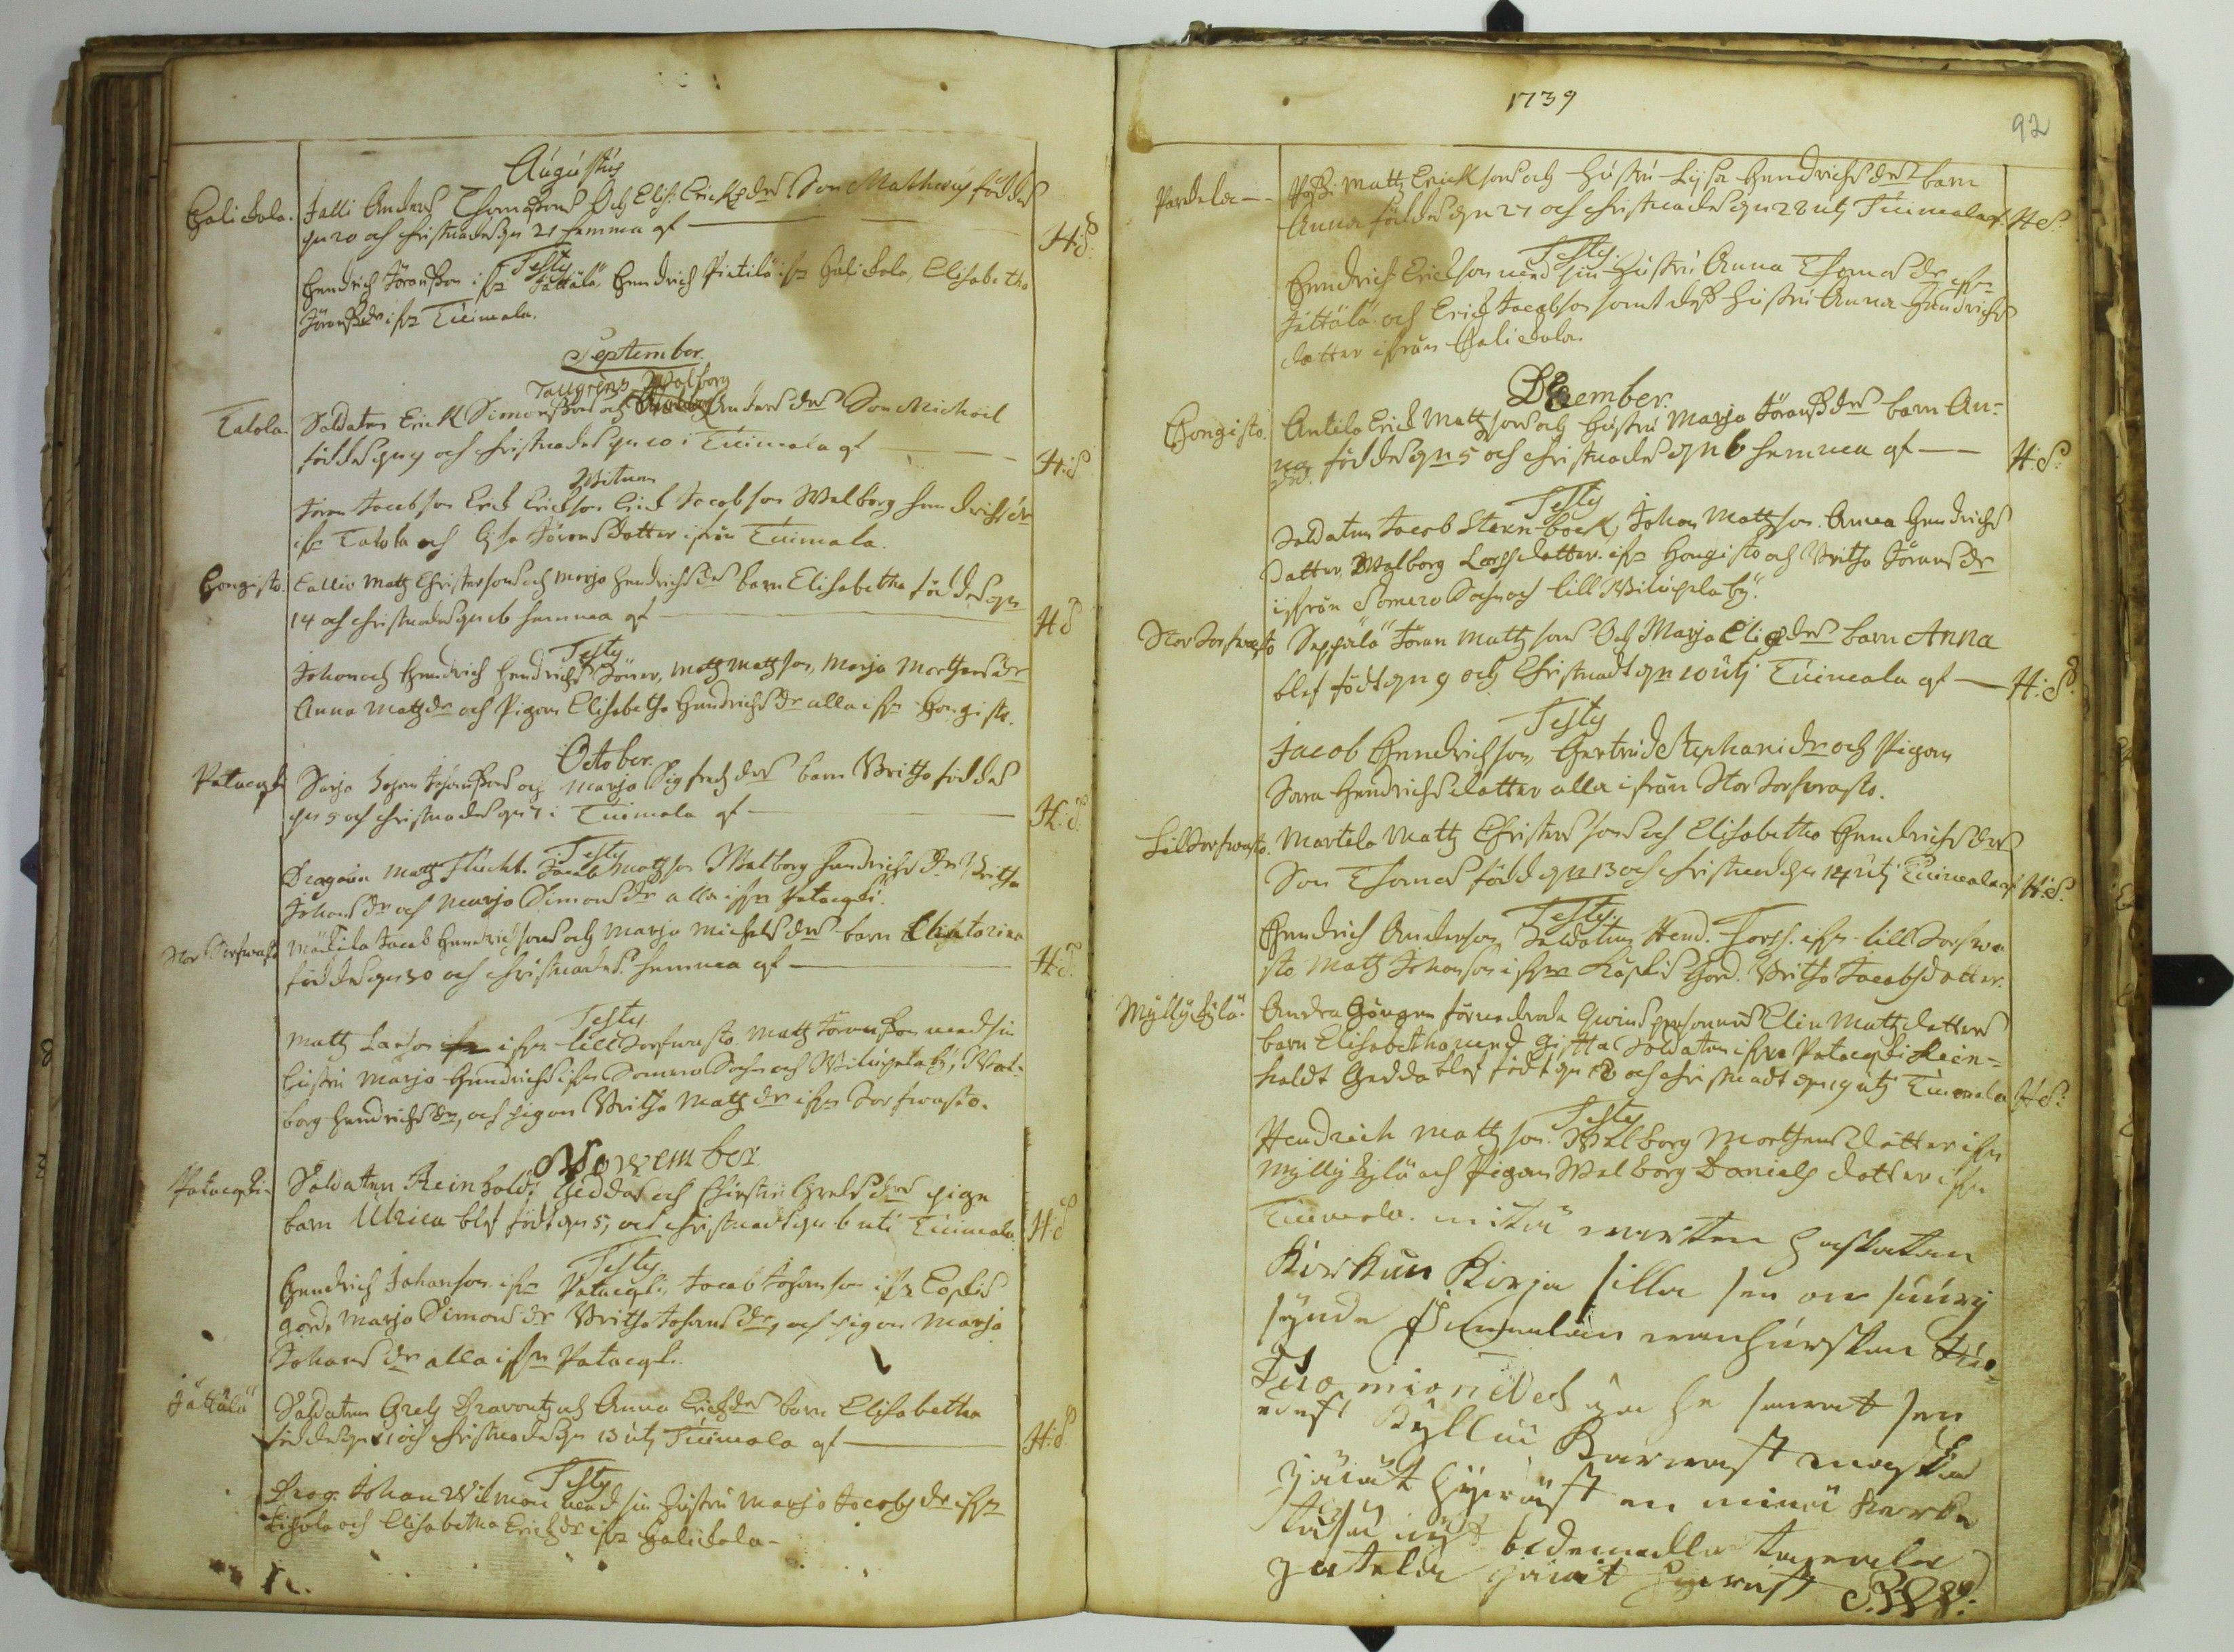 Augustus
Halickola. Jalli Anders Thomasons Och Elis: Erichsdrs Son Matheus föddes
dn 20 och christnades dn 21 hemma af H:S:
Testes
Hendrich Jöransson ifrn Jättälä, Hendrich Pietilä ifrn Halickola, Elisabetha
Jöransdr ifrn Tuimala.
September.
Tallgrens Walborg
Talola. Soldaten Erick Simonssons och Andersdrs Son Michael
föddes dn 9 och christnades dn 10 i Tuimala af H:S
Witnen
Jöran Jacobson Erick Erickson Erick Jacobson Walborg Hendrichsdr
ifrn Talola och Lisa Jörans dotter ifrån Tuimala.
Hongisto. Callio Matz Christersons och Marja Hendrichsdrs barn Elisabetha föddes dn
14 och christnades dn 16 hemma af H S
Testes
Johan och Hendrich Hendrichs Söner, Matz Matzson, Marja Mortensdr
Anna Matzdr och Pigan Elisabetha Hendrichsdr alla ifrn Hongisto.
October.
Pataegki Sarja Johan Johanssons och Marja Sigfredsdrs barn Britha föddes
dn 5 och christnades dn 7 i Tuimala af H:S.
Testes
Dragoun Matz Flücht. Jacob Matzson Walborg Hendrichsdr Britha
Johansdr och Marja Simonsdr alla ifrn Pataegki.
Stor Sorfwasto Mäckilä Jacob Hendrichsons och Marja Michelsdrs barn Chatarina
föddes dn 30 och christnades hemma af H:S.
Testes
Matz Larson ifrn lill Sorfwasto. Matz Jöranson med sin
hustru Marja Hendrichsdr ifrn Somero Sochn och Wiluxela by, Wal-
borg Hendrichsdr, och pigan Britha Matzdr ifrn Sorfwasto.
November.
Pataegki- Soldaten Reinholdt Geddas och Christin Grelsdrs pige
barn Ulrica blef födt dn 5, och christnadt dn 6 uti Tuimala. H:S
Testes
Hendrich Johanson ifrn Pataegki, Jacob Johanson ifrn Coskis
gård, Marja Simonsdr Britha Johansdr, och pigan Marja
Johansdr alla ifrn Pataegki.
Jättälä Soldaten Grels Dravantz och Anna Erichsdrs barn Elisabetha
föddes dn 11 och christnades dn 13 utj Tuimala af H:S.
Testes
Drag. Johan Wilman med sin hustru Marja Jacobsdr ifrn
och Elisabetha Erichsdr ifrn Halickola-
1739
92
Pardela - Matz Ericksons och hustru Lijsa Hendrichsdrs barn
Anna föddes dn 27 och christnades dn 28 utj Tuimala af H S:
Testes.
Hendrich Erickson med sin hustru Anna Thomasdr ifrn
Jättälä och Erich Jacobson samt dess hustru Anna Hendrichs
dotter ifrån Halickola.
December.
Hongisto. Antila Erick Matzsons och hustru Marja Jöransdrs barn An-
na föddes dn 5 och christnades dn 6 hemma af H:S:
Testes
Soldaten Jacob Stenbock, Johan Mattzson. Anna Hendrichs
Datter, Walborg Larsdatter. ifrn Hongisto och Britha Jöransdr
ifrån Somero Sochn och till Wiluxela by.
Stor Sorfwasto Seppälä Jöran Mattzsons Och Marja Eliædrs barn Anna
blef födt dn 9 och Christnadt dn 10 utj Tuimala af H:S.
Testes
Jacob Hendrichson, Gertrud Stephani dr och Pigan
Sara Hendrichsdatter alla ifrån Stor Sorfwasto.
Lill Sorfwasto. Martela Matz Christersons och Elisabetha Hendrichsdrs
Son Thomas född dn 13 och christnad dn 14 utj Tuimala af H:S.
Testes.
Hendrich Anderson, Soldaten Hend. Forss. ifrn lill Sorfwa
sto Matz Johanson ifrn Koskis Gård. Britha Jacobsdotter.
Myllykylä Andra Gången förnedrade Qwinspersonens Elin Matzdotters
barn Elisabetha med gifta Soldaten ifrn Pataegki Rein-
holdt Gedda blef födt dn 18 och christnadt dn 19 utj Tuimala H S:
Testes
Hendrich Mattzson. Walborg Mortensdatter ifrn
Myllykylä och Pigan Walborg Daniels dotter ifrn
Tuimala. mitä warten haskatan
Kirkun Kirja silla sen on suuri
synde Jumalan wanhurskan
Tuomion edes